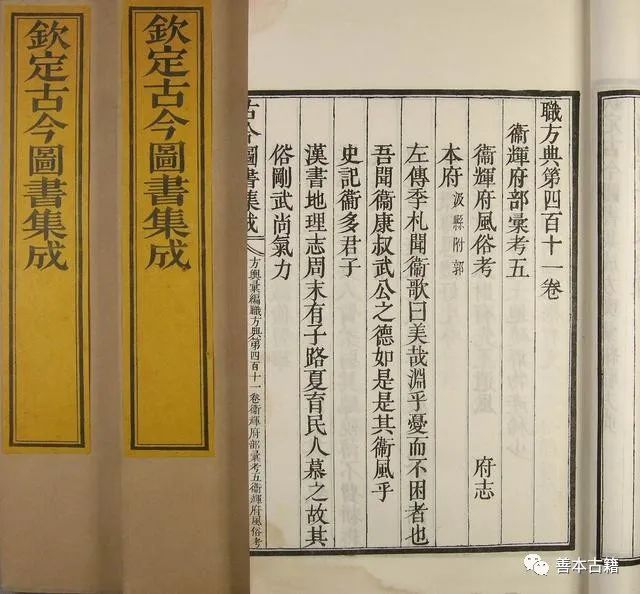 欽定古今圖書集成
欽定古今圖書集成
職方典第四百十一卷
衞輝府部彙考五
衞輝府風俗考
府志
本府 汲縣附郭
左傳季札聞衞歌曰美哉淵乎憂而不困者也
吾聞衞康叔武公之德如是是其衞風乎
史記衞多君子
漢書地理志周末有子路夏育民人慕之故其
俗剛武尚氣力
古今圖書集成
方輿彙編職方典第四百十一卷衞輝府部彙考五衞輝府風俗考
善本古籍